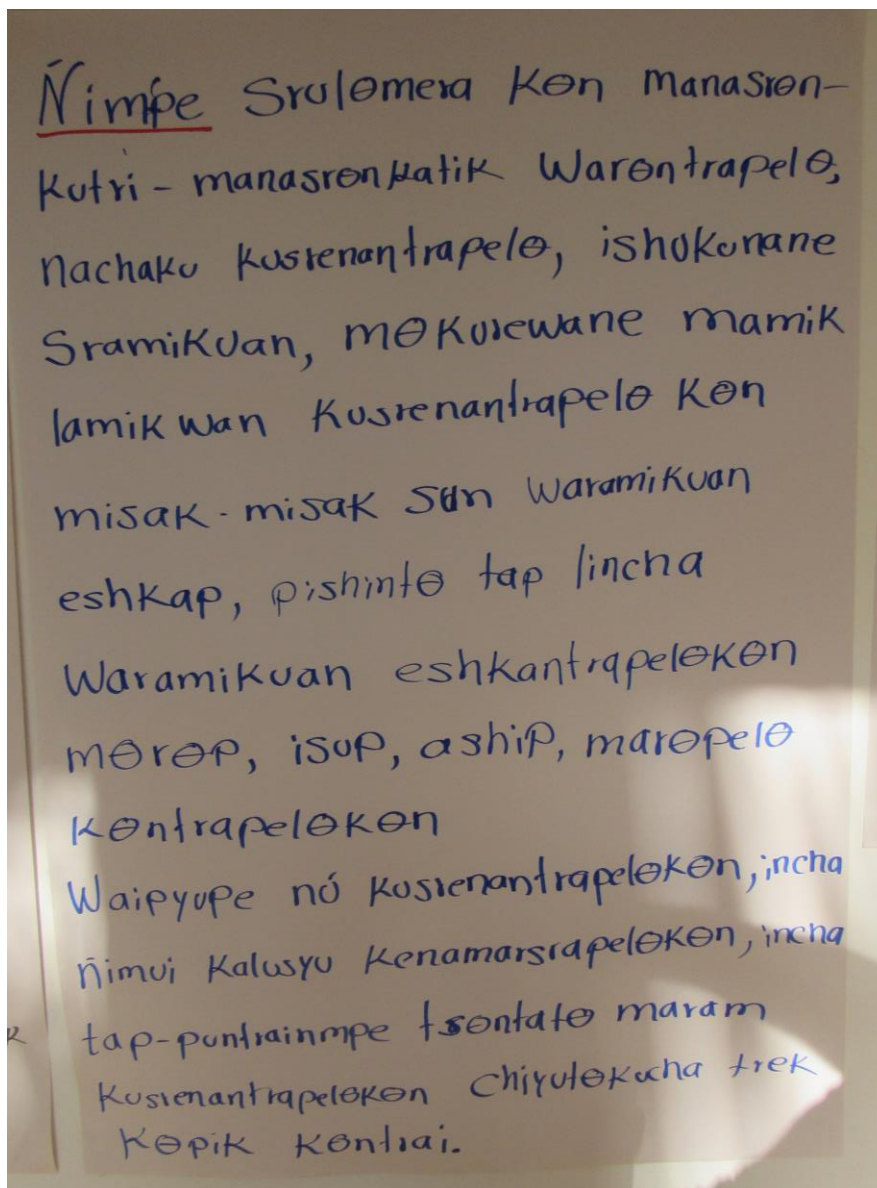 Ñimpe Srulɵmera Kɵn manasrɵn-
Kutri - manasrɵnkatik Warɵntrapelɵ,
nachaku kusrenantrapelɵ, ishukunane
Sramikuan, mɵkurewane mamik
lamik wan Kusrenantrapelɵ Kɵn
misak - misak Sun Waramikuan
eshkap, pishintɵ tap lincha
Waramikuan eshkantrapelɵkɵn
mɵrɵp, isup, aship, marɵpelɵ
kɵntrapelɵkɵn
Waipyupe nú kusrenantrapelɵkɵn, incha
ñimui Kalusyu Kenamarsrapelɵkɵn, incha
tap-puntrainmpe tsɵntatɵ maram
Kusrenantrapelɵkɵn Chiyutɵkucha trek
Kɵpik Kɵntrai.